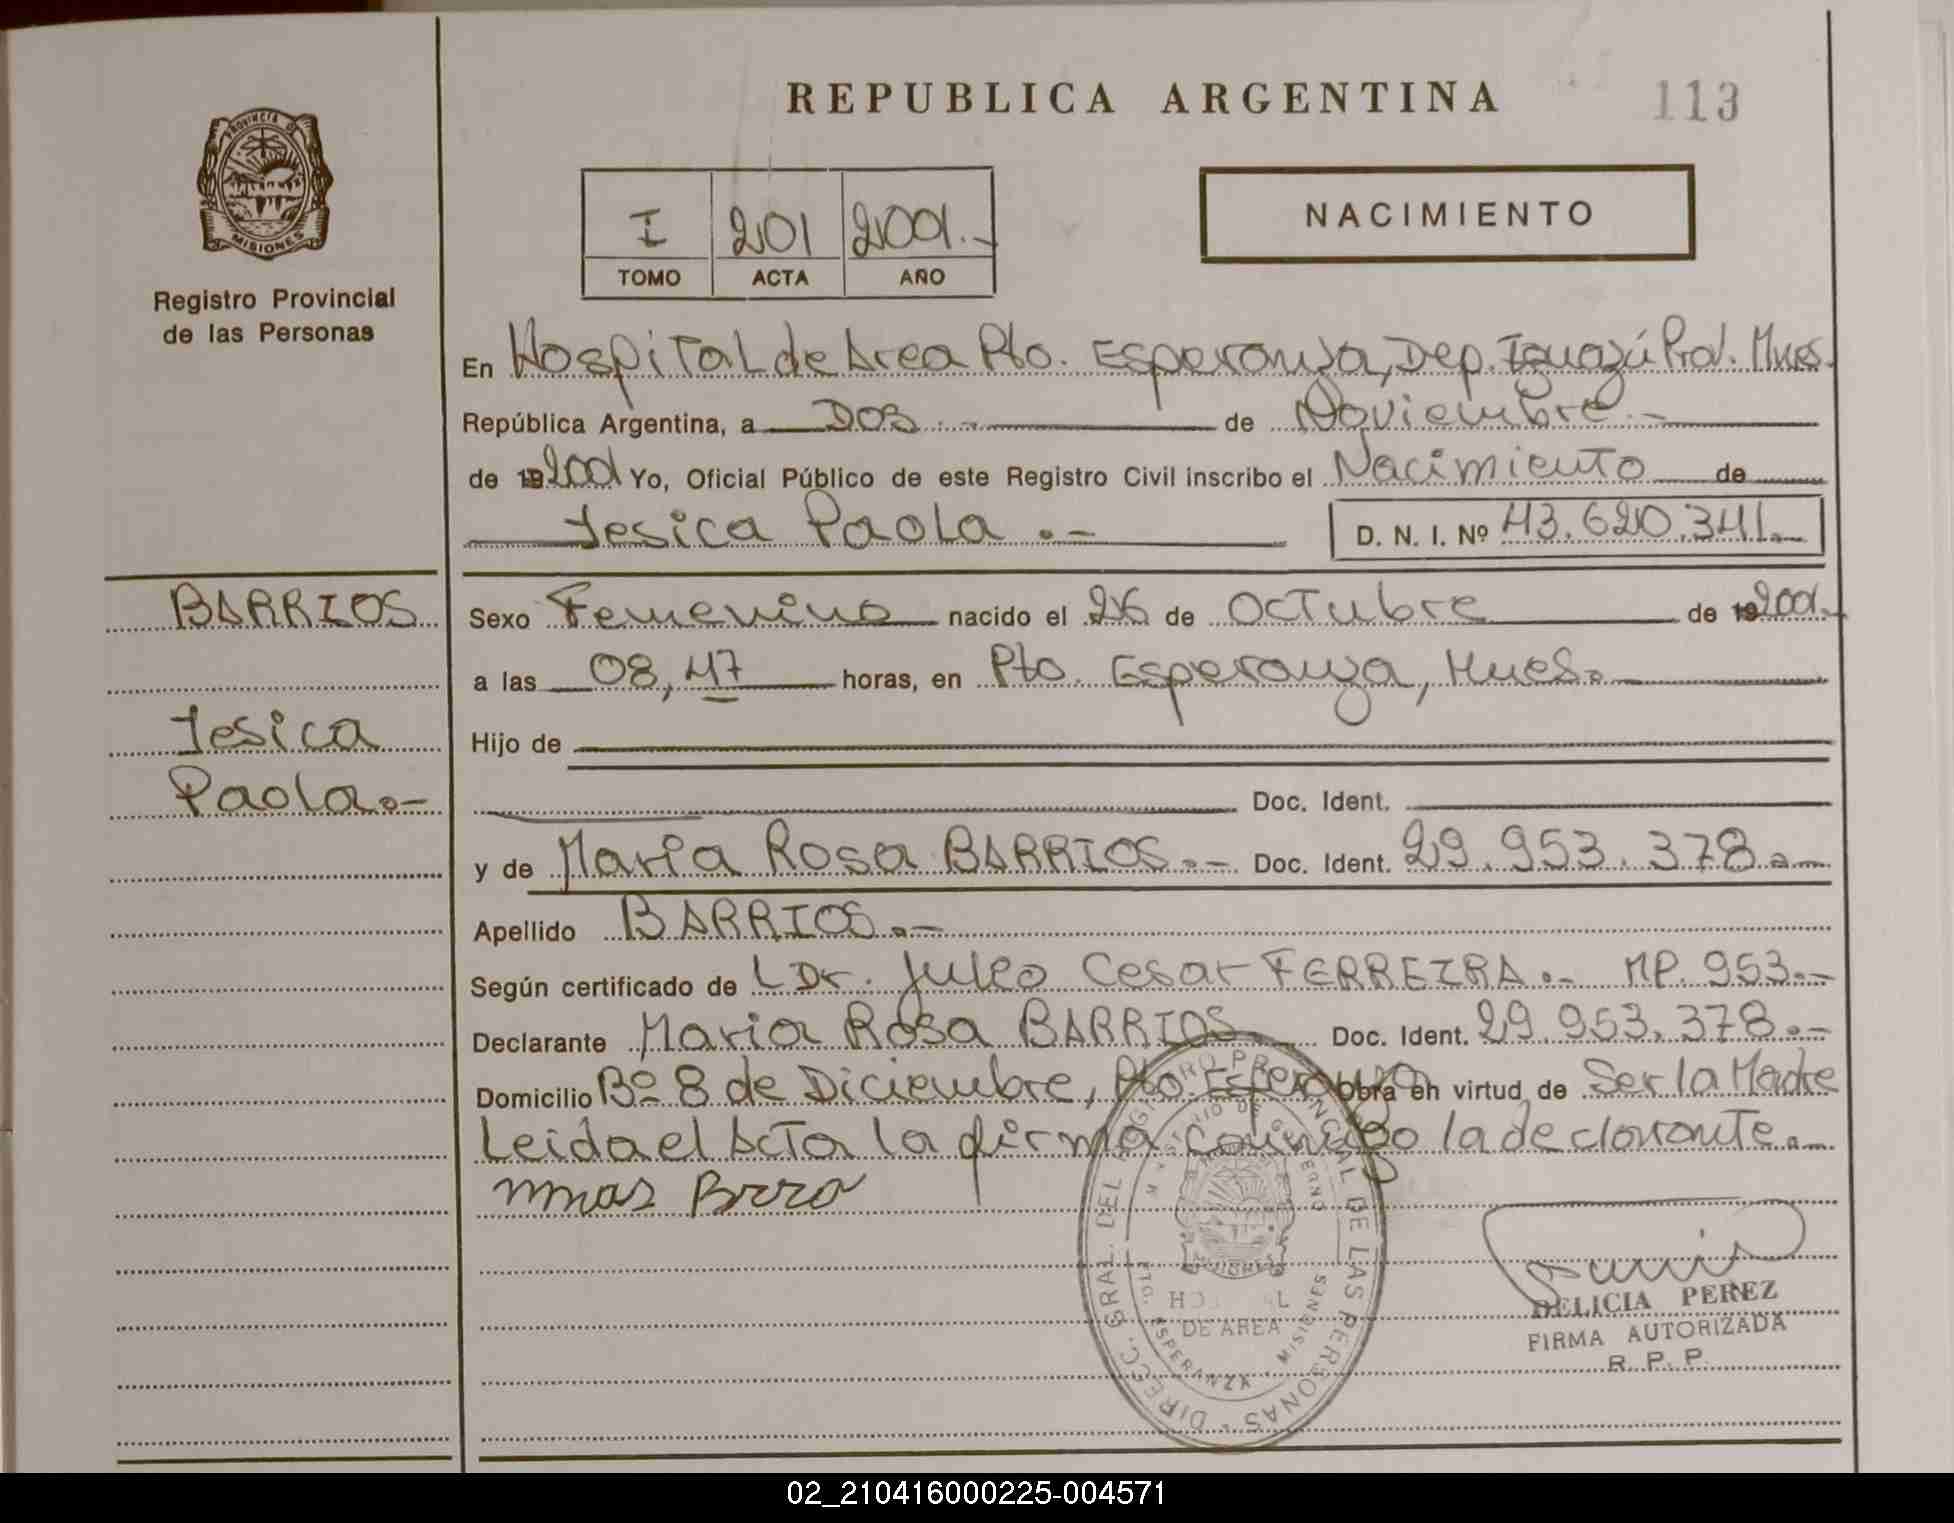 REPUBLICA ARGENTINA
113
PROVINCIA DE
MISIONES
Registro Provincial
de las Personas
I 201 2001.-
TOMO ACTA AÑO
NACIMIENTO
En Hospital de Area Pto. Esperanza, Dep. Iguazú Prov. Mnes.
República Argentina, a DOS.- de Noviembre.-
de 192001 Yo, Oficial Público de este Registro Civil inscribo el Nacimiento de
Jesica Paola.- D. N. I. Nº 43.620.341.-
BARRIOS
Jesica
Paola.-
Sexo Femenino nacido el 26 de OcTubre de 192001.-
a las 08,47 horas, en Pto. Esperanza, Mnes.
Hijo de
Doc. Ident.
y de Maria Rosa BARRIOS.- Doc. Ident. 29.953.378.-
Apellido BARRIOS.-
Según certificado de L Dr. Julio Cesar FERREIRA.- MP. 953.-
Declarante Maria Rosa BARRIOS Doc. Ident. 29.953.378.-
Domicilio Bº 8 de Diciembre, Pto. Esperanza Obra en virtud de Ser la Madre
Leida el Acta la firma conmigo la declarante.-
DIRECC. GRAL. DEL REGISTRO PROVINCIAL DE LAS PERSONAS
MINISTERIO DE GOBIERNO
MISIONES
HOSPITAL
DE AREA
PTO. ESPERANZA - MISIONES
DELICIA PEREZ
FIRMA AUTORIZADA
R. P. P.
02_210416000225-004571